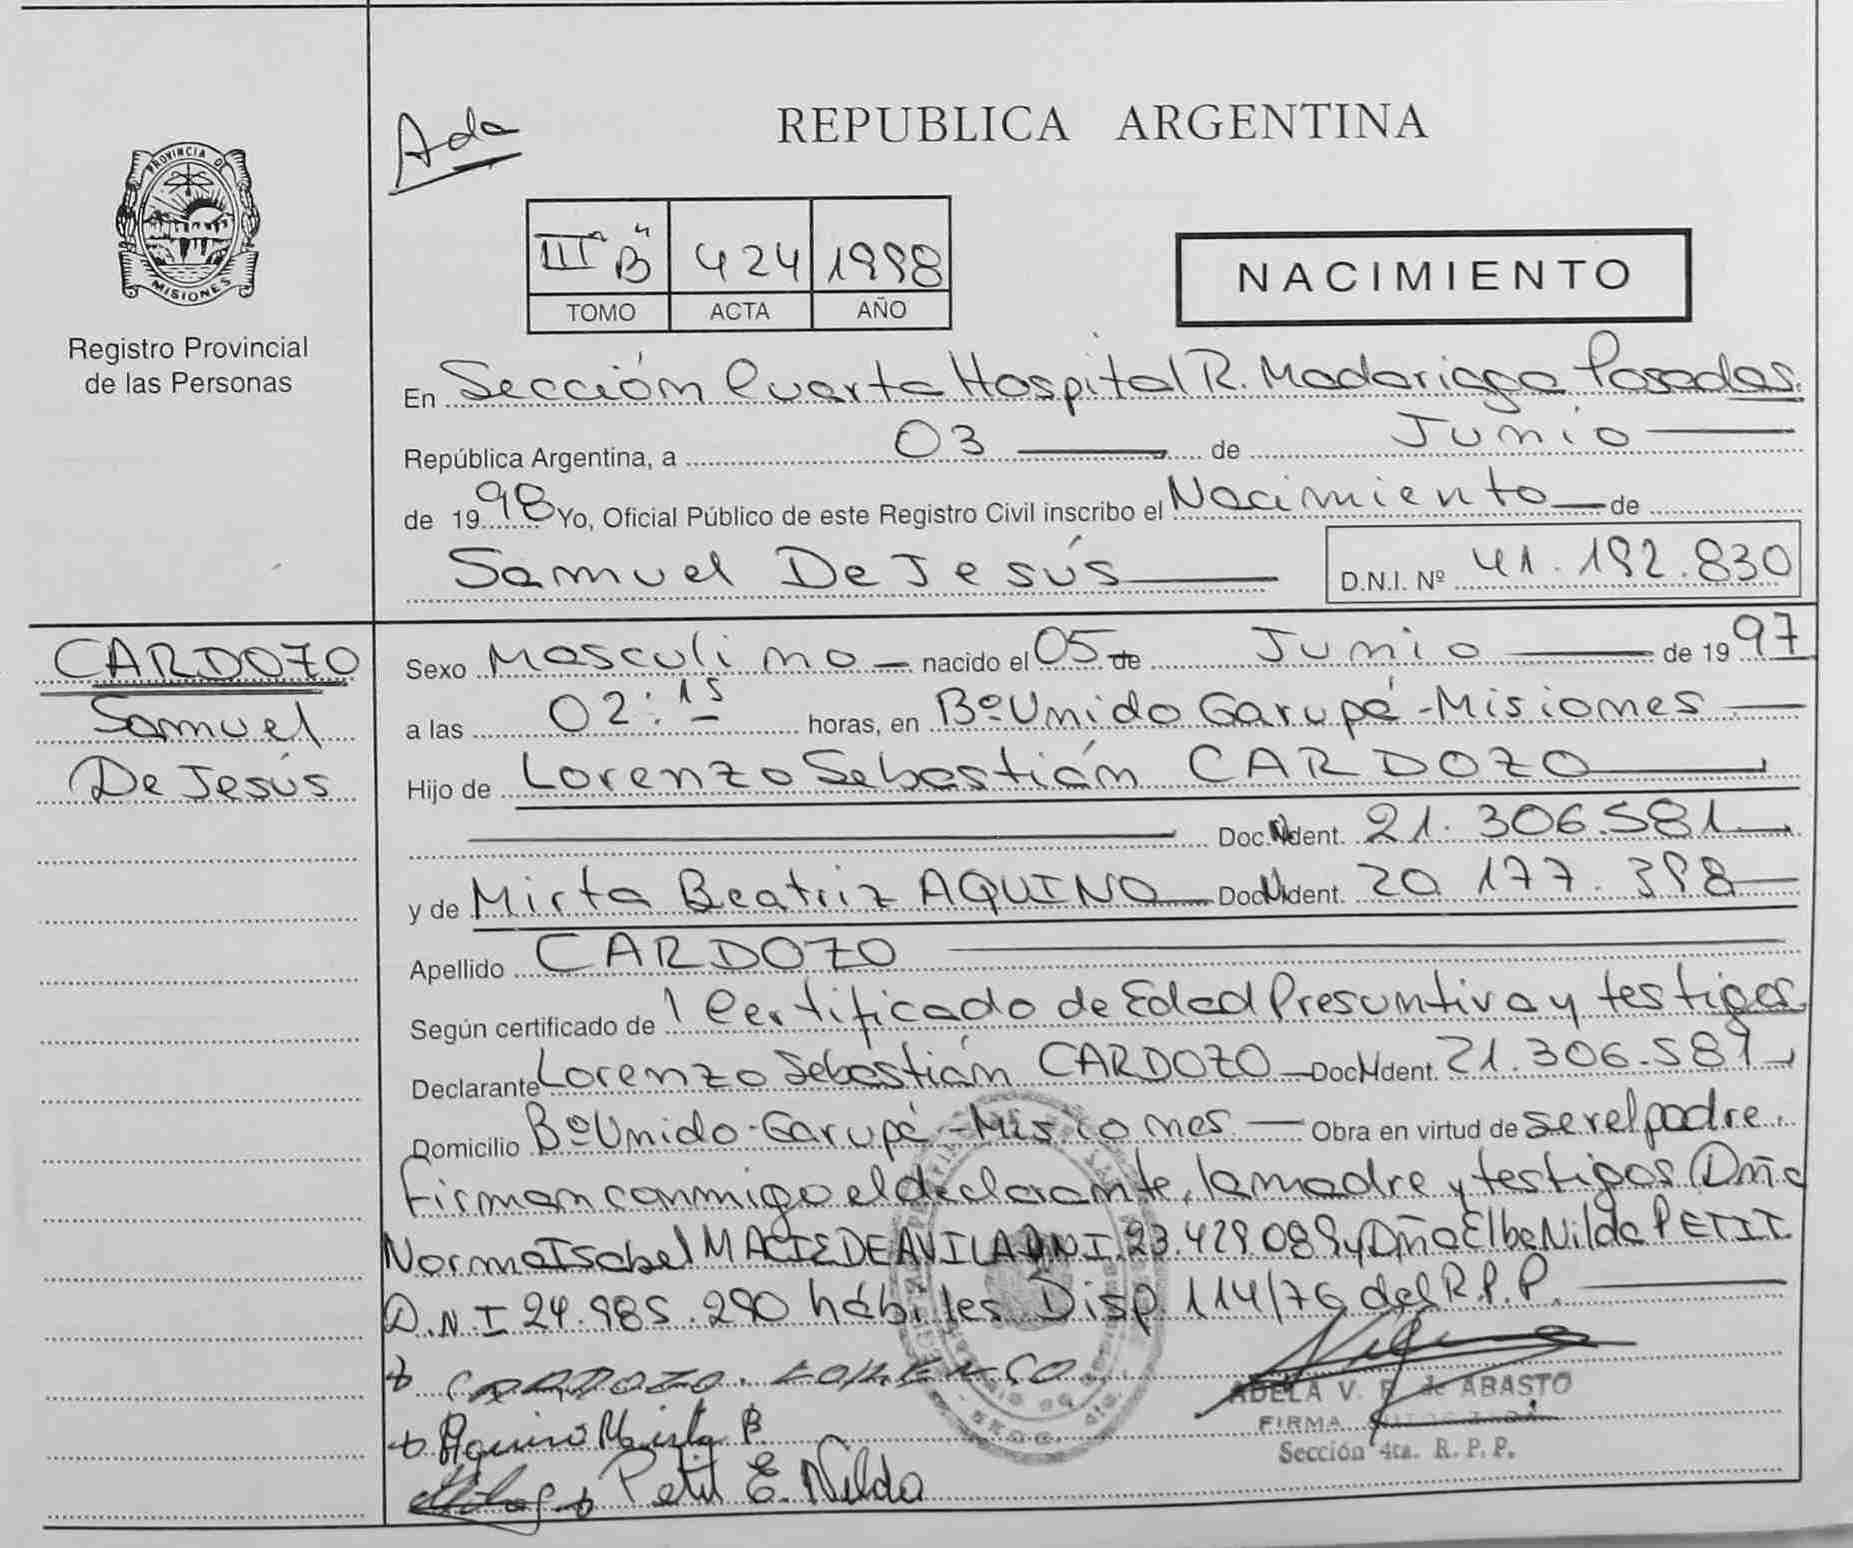 PROVINCIA DE
MISIONES
Registro Provincial
de las Personas
Ada
REPUBLICA ARGENTINA
III "B" 424 1998
TOMO ACTA AÑO
NACIMIENTO
En Sección Cuarta Hospital R. Madariaga Posadas.
República Argentina, a 03 de Junio
de 1998 Yo, Oficial Público de este Registro Civil inscribo el Nacimiento de
Samuel De Jesús D.N.I. Nº 41.192.830
CARDOZO
Samuel
De Jesús
Sexo Masculino nacido el 05 de Junio de 1997
a las 02:15 horas, en Bº Unido Garupá - Misiones
Hijo de Lorenzo Sebastián CARDOZO
Doc. Ident. 21.306.581
y de Mirta Beatriz AQUINO Doc. Ident. 20.177.398
Apellido CARDOZO
Según certificado de 1 Certificado de Edad Presuntiva y testigos
Declarante Lorenzo Sebastián CARDOZO Doc. Ident. 21.306.581
Domicilio Bº Unido - Garupá - Misiones Obra en virtud de ser el padre.
Firman conmigo el declarante, la madre y testigos Dña
Norma Isabel MACIE DE AVILA DNI 23.429.089 y Dña Elba Nilda PETIT
D.N.I 24.985.290 hábiles Disp. 114/76 del R.P.P.
CARDOZO. LORENSO
Aquino Mirta B.
Petit E. Nilda
ADELA V. de ABASTO
FIRMA
Sección 4ta. R. P. P.